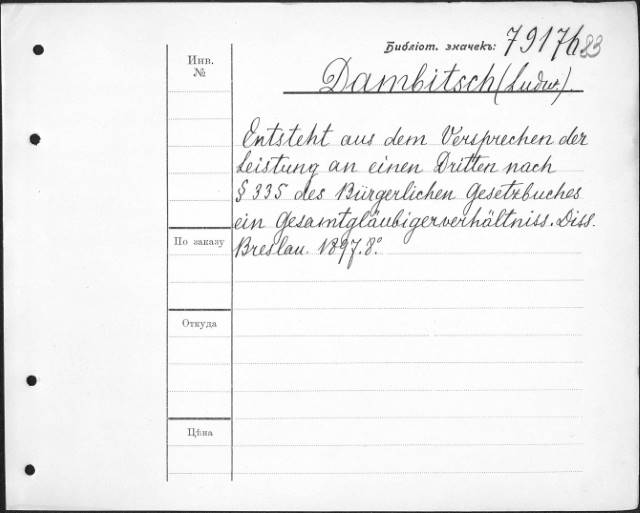 Библіот. значекъ: 7917h/83
Инв. №
Dambitsch (Ludw.).
Entsteht aus dem Versprechen der
Leistung an einen Dritten nach
§ 335 des Bürgerlichen Gesetzbuches
ein Gesamtgläubigerverhältniss. Diss.
Breslau. 1897. 8°.
По заказу
Откуда
Цѣна